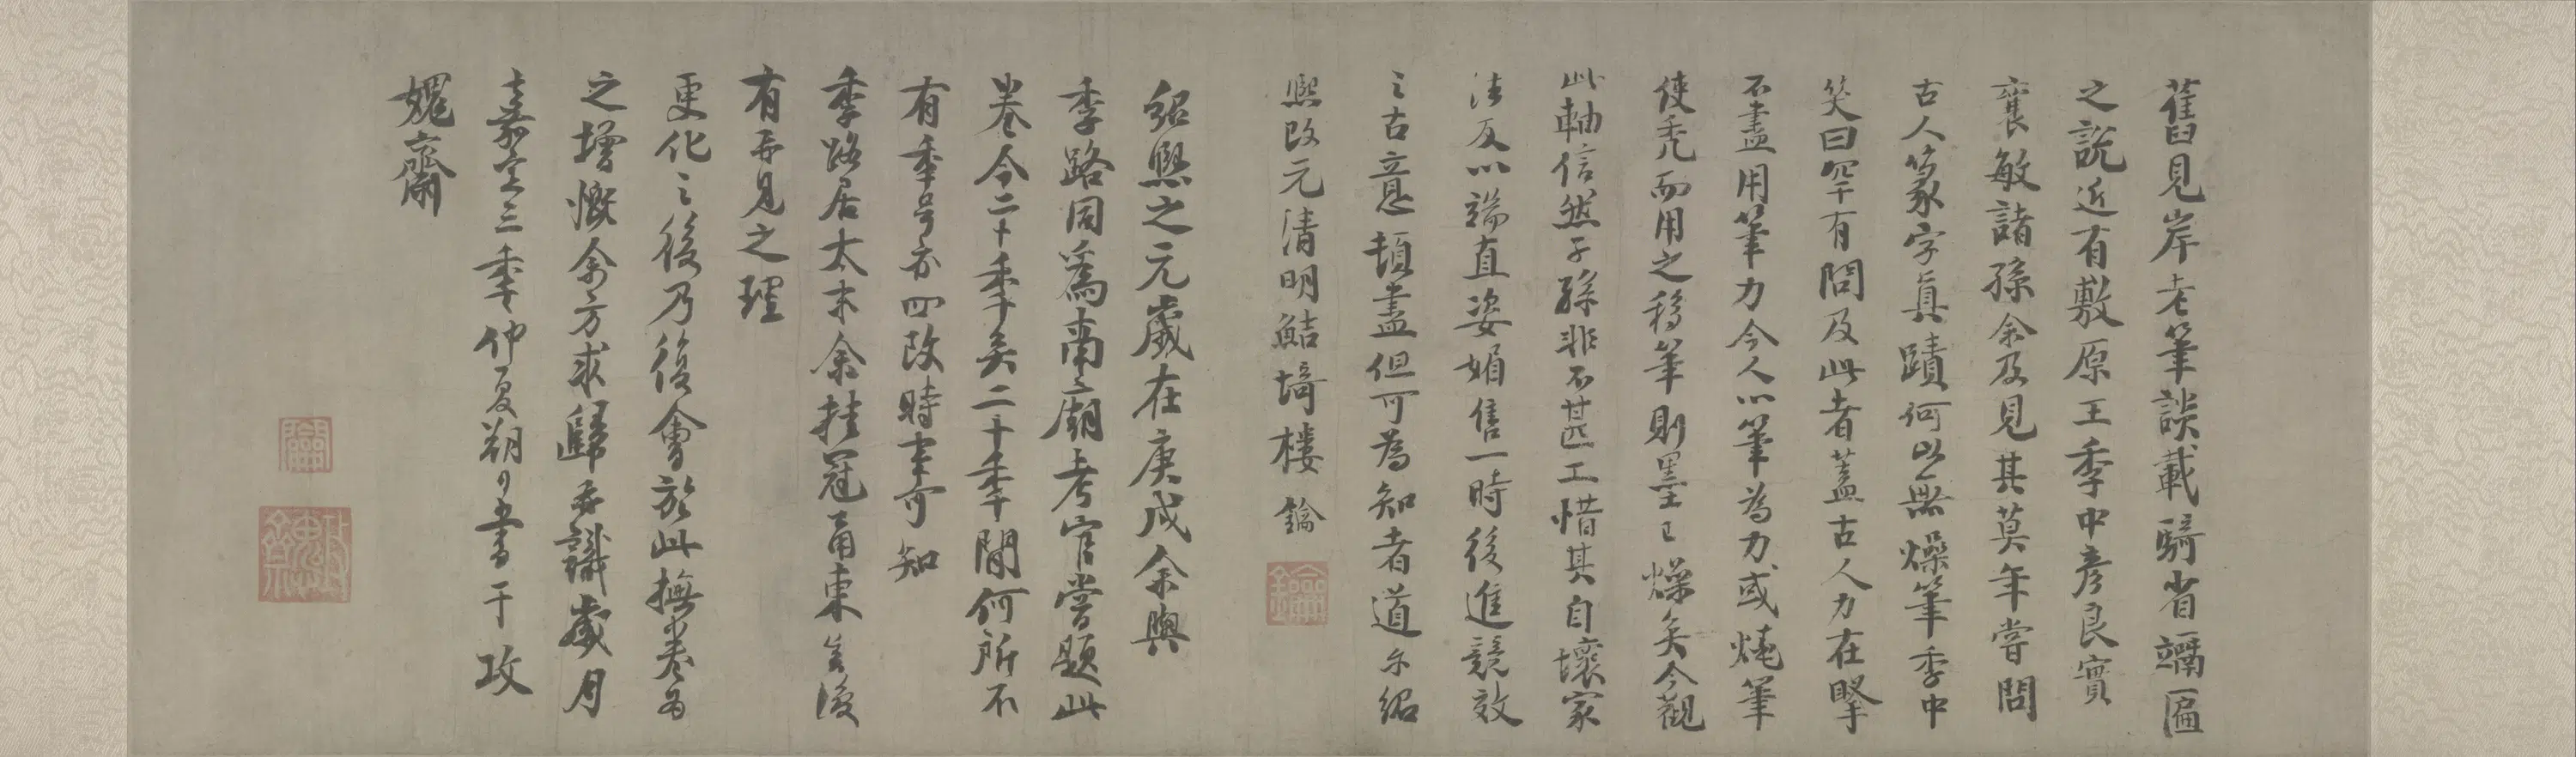 舊見岸老筆談載騎省𥫃匾
之說近有敷原王季中彥良實
襄敏諸孫余及見其莫年嘗問
古人篆字真蹟何以無燥筆季中
笑曰罕有問及此者蓋古人力在掔
不盡用筆力今人以筆為力或燒筆
使禿而用之移筆則墨已燥矣今觀
此軸信然子孫非不甚工惜其自壞家
法反以端直姿媚售一時後進競效
之古意頓盡但可為知者道尒紹
熙改元清明鮚埼樓鑰
紹熙之元歲在庚戌余與
季路同爲南廟考官嘗題此
卷今二十季矣二十季間何所不
有季号亦四改時事可知
季路居太末余挂冠甬東矣後
有再見之理
更化之後乃復會於此撫卷為
之增慨余方求歸再識歲月
嘉定三季仲夏朔日書于攻
媿齋